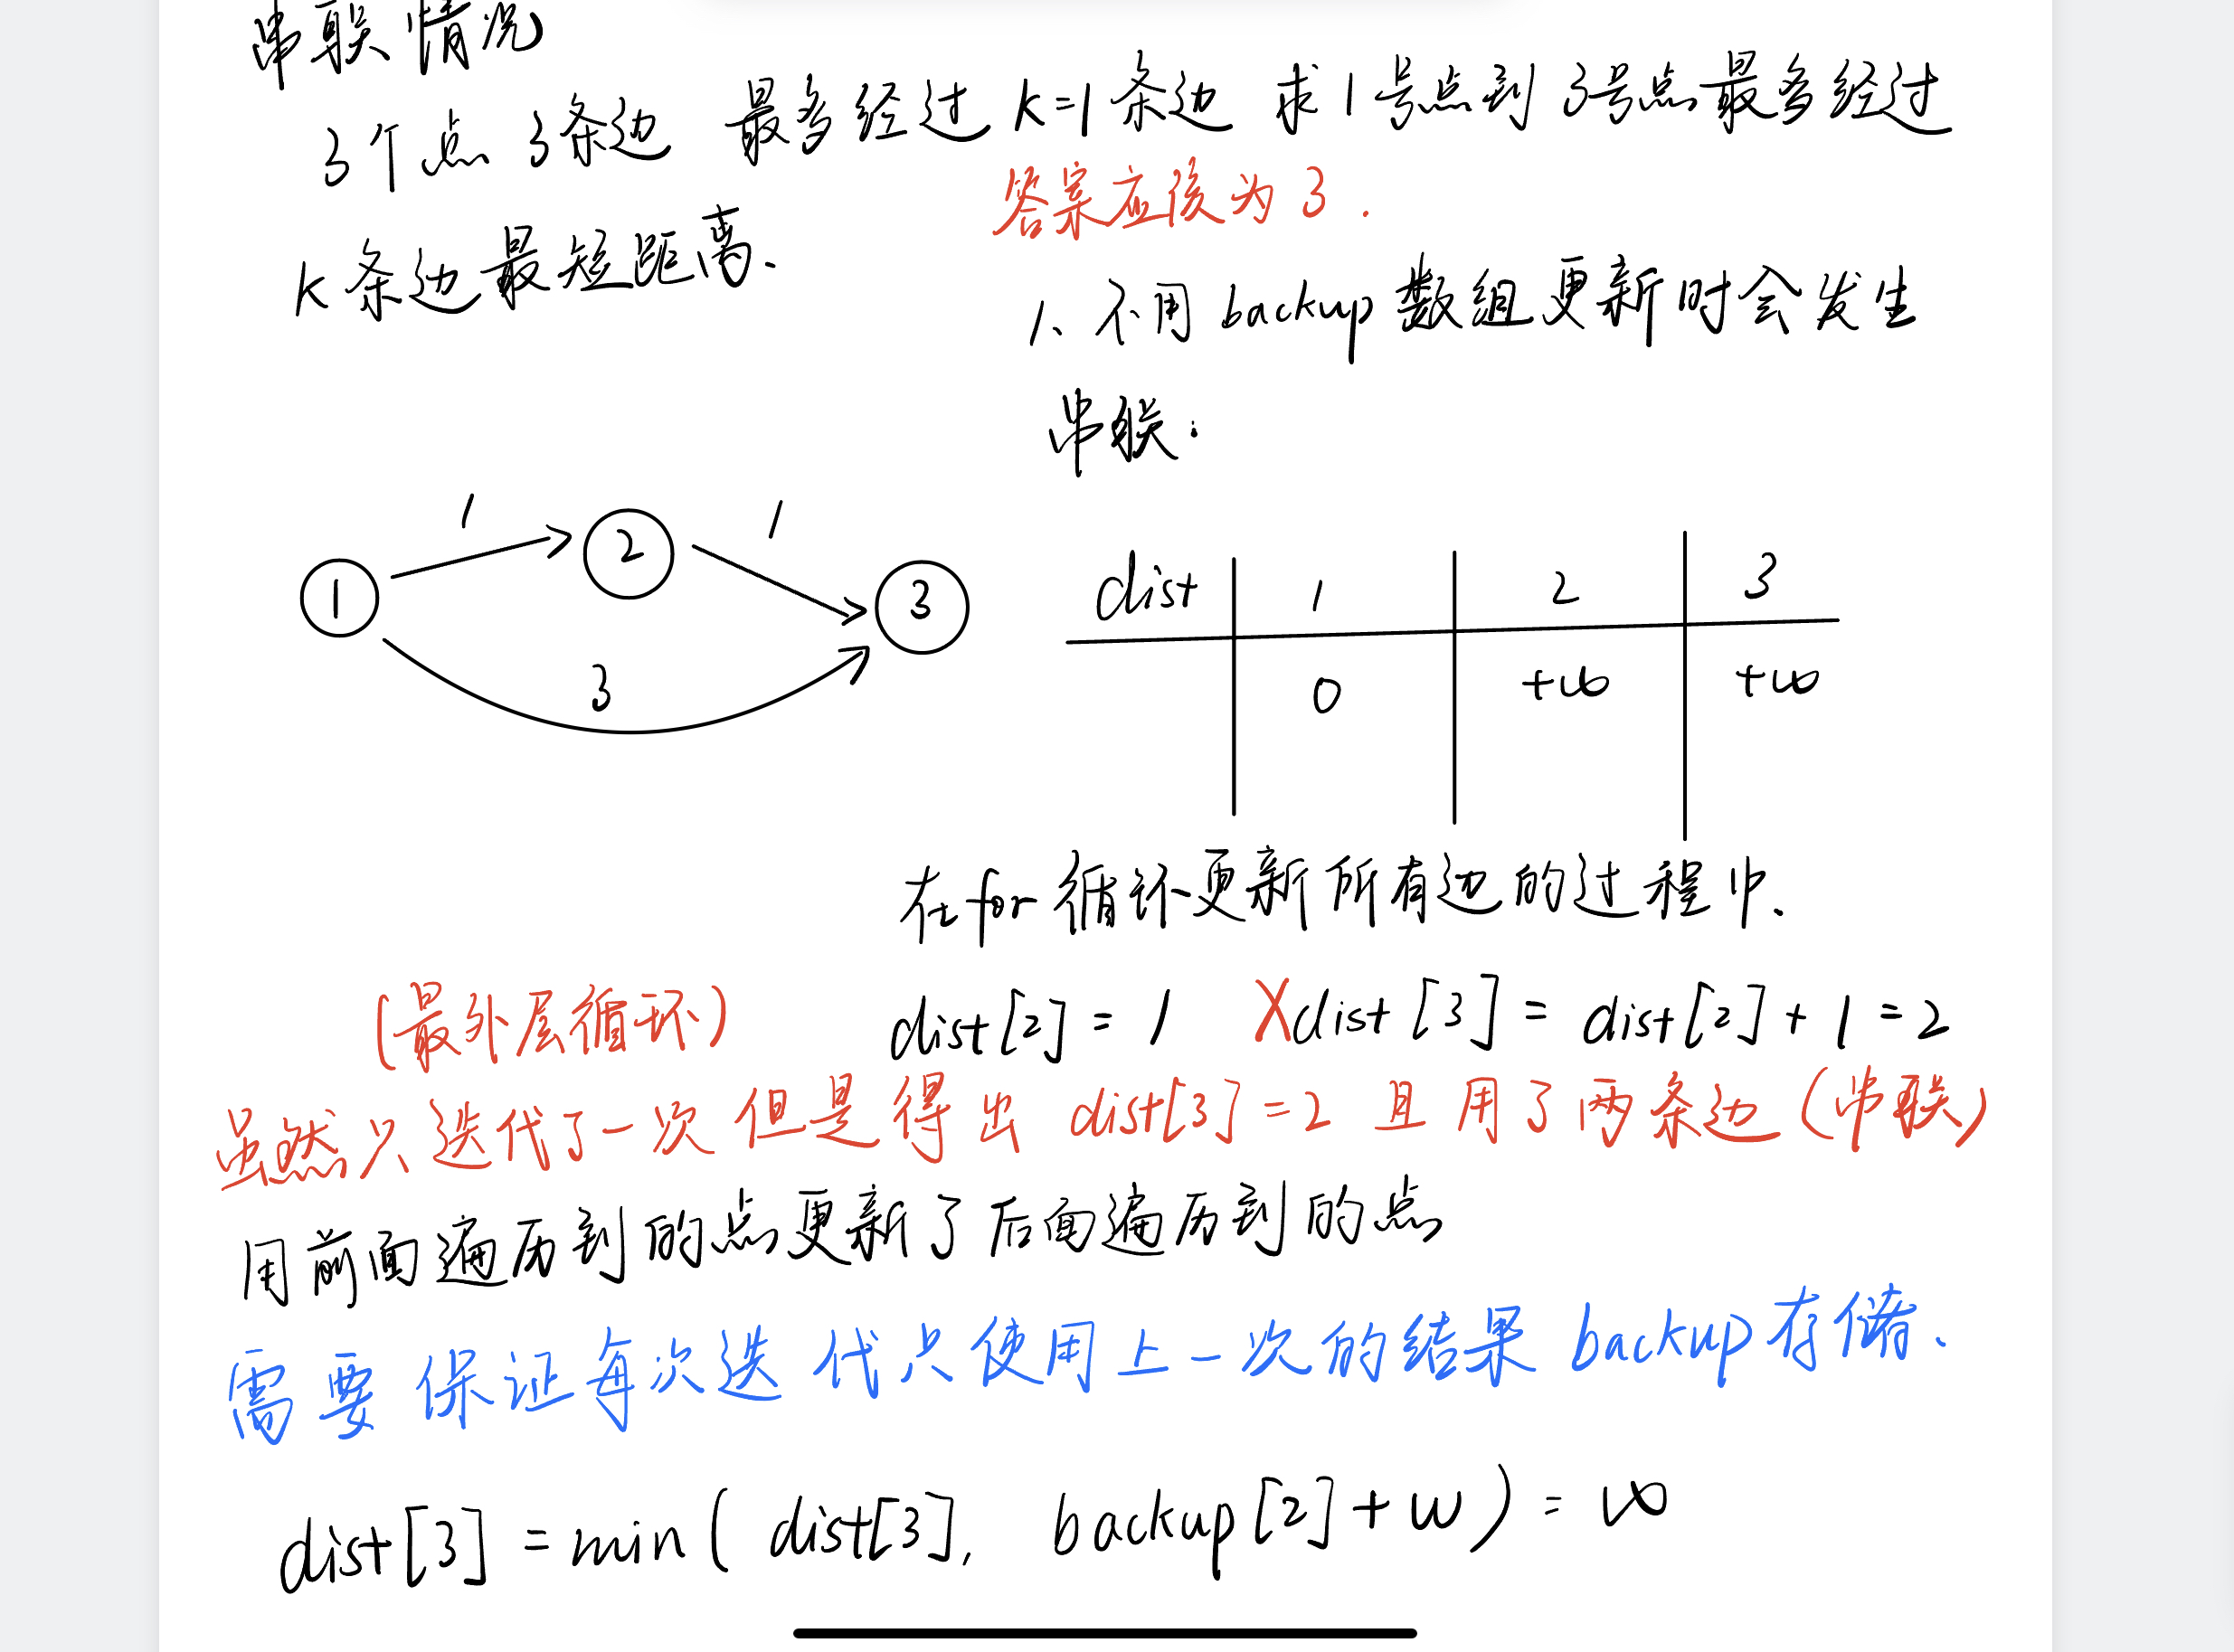 串联情况
3个点 3条边 最多经过 k=1条边 求1号点到3号点最多经过
k条边最短距离.
答案应该为3.
1、不用backup数组更新时会发生
串联:
1
1
1
2
3
3
dist 1 2 3
0 +∞ +∞
在for循环更新所有边的过程中.
(最外层循环) dist[2]=1 X dist[3]=dist[2]+1=2
虽然只迭代了一次但是得出 dist[3]=2 且用了两条边(串联)
用前面遍历到的点更新了后面遍历到的点
需要保证每次迭代只使用上一次的结果 backup存储、
dist[3]=min( dist[3], backup[2]+w)=∞